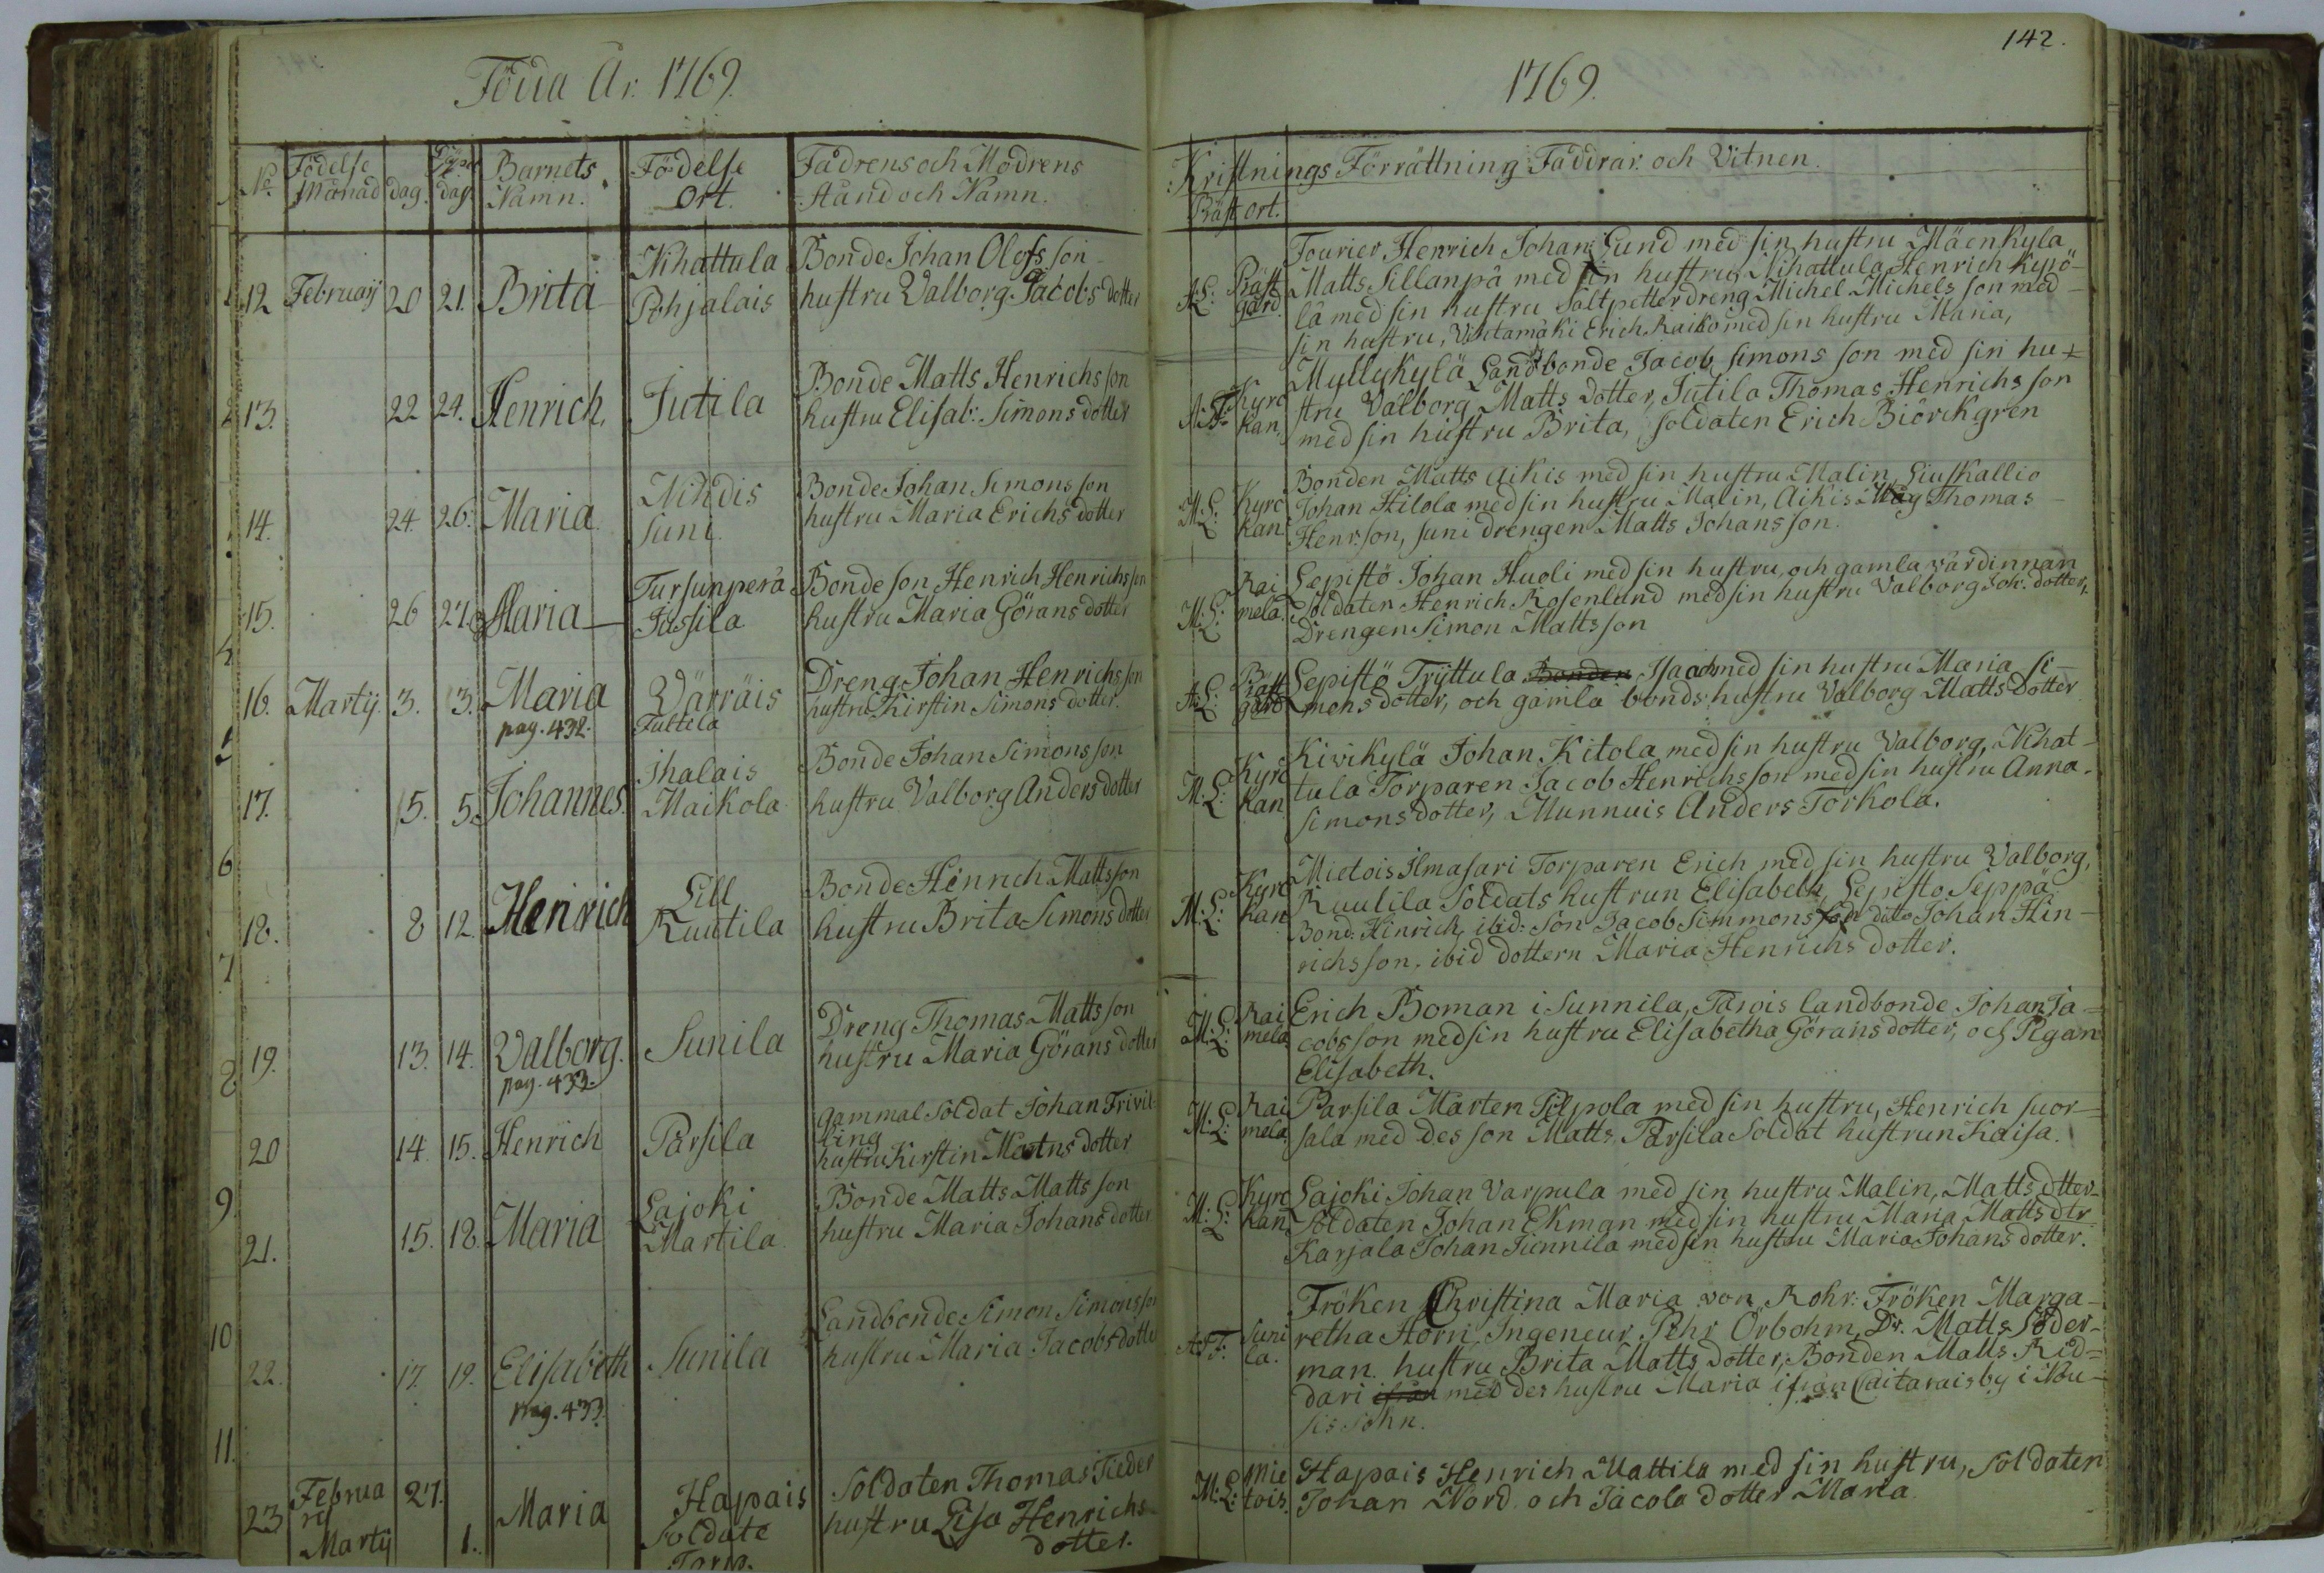 Födda År 1769.
No. Födelse Månad dag. Döpelse dag. Barnets Namn. Födelse Ort. Fädrens och Modrens Stånd och Namn.
12 Februarij 20 21. Brita Nihattula Pohjalais
Bonde Johan Olofs son
hustru Valborg Jacobs dotter
13. 22 24. Henrich Jutila
Bonde Matts Henrichs son
hustru Elisab: Simons dotter
14. 24 26. Maria Nihdis Suni
Bonde Johan Simons son
hustru Maria Erichs dotter
15. 26 27. Maria Tursunperä Jussila
Bonde son Henrich Henrichs son
hustru Maria Görans dotter
16. Martij 3. 3. Maria pag. 432. Värräis Tultela
Dreng Johan Henrichs son
hustru Kirstin Simons dotter.
17. 5. 5. Johannes. Ihalais Maikola
Bonde Johan Simons son
hustru Valborg Anders dotter
18. 8 12. Henrich Lill Ruutila
Bonde Henrich Matts son
hustru Brita Simons dotter
19. 13. 14. Valborg. pag. 433. Sunila
Dreng Thomas Matts son
hustru Maria Görans dotter
20 14. 15. Henrich Parsila
gammal Soldat Johan Frivil-
ling
hustru Kirstin Matns dotter
21. 15. 18. Maria Lajoki Martila
Bonde Matts Matts son
hustru Maria Johans dotter
22. 17. 19. Elisabeth pag. 433. Sunila
Landbonde Simon Simons son
hustru Maria Jacobs dotter
23 Februarij 27. Martij 1. Maria Hapais Soldate Torp.
Soldaten Thomas Tieder
hustru Lisa Henrichs
dotter.
142.
1769.
Kristnings Förrättning Faddrar och Vitnen.
Präst ort.
A: L: Präst gård.
Fourier Henrich Johan Lund med sin hustru Mäenkyla
Matts Sillanpä med sin hustru, Nihattula Henrich Kepö-
lä med sin hustru Saltpetterdreng Michel Michels son med
sin hustru, Vintamäki Erich Raiko med sin hustru Maria,
A: F: Kyrckan
Myllykylä Landbonde Jacob Simons son med sin hu-
stru Valborg Matts dotter, Jutila Thomas Henrichs son
med sin hustru Brita, Soldaten Erich Biörckgren
M: L: Kyrckan
Bonden Matts Aikis med sin hustru Malin Liuskallio
Johan Hilola med sin hustru Malin, Aikis Måg Thomas
Henr. son, Suni drengen Matts Johans son.
M: L: Raimela.
Lepistö Johan Huoli med sin hustru, och gamla wärdinnan
Soldaten Henrich Rosenlund med sin hustru Valborg Joh: dotter,
Drengen Simon Matts son
A: L: Präst gård
Lepistö Tryttula Bonden Isaac med sin hustru Maria Si-
mons dotter, och gamla bonds hustru Valborg Matts dotter
M: L: Kyrckan
Kivikylä Johan Kitola med sin hustru Valborg, Nihat-
tula Torparen Jacob Henrichs son med sin hustru Anna
Simons dotter, Munnuis Anders Torkola.
M: L: Kyrckan
Mietois Ilmasari Torparen Erich med sin hustru Valborg,
Ruutila Soldats hustrun Elisabeth, Lepisto Seppä
Bond: Hinrich, ibid: Son Jacob Simmons son dito Johan Hin-
richs son, ibid dottern Maria Henrichs dotter.
M: L: Raimela
Erich Boman i Sunnila, Tarvis landbonde Johan Ja-
cobs son med sin hustru Elisabetha Görans dotter, och Pigan
Elisabeth.
M: L: Raimela
Parsila Marten Pilpola med sin hustru, Henrich Suor-
sala med des son Matts. Parsila Soldat hustrun Kaisa.
M: L: Kyrckan
Lajoki Johan Varpula med sin hustru Malin, Matts dtter.
Soldaten Johan Ekman med sin hustru Maria Matts dtr.
Karjala Johan Tiennila med sin hustru Maria Johans dotter.
A: F: Sunila.
Fröken Christina Maria von Rohr. Fröken Marga-
retha Horn, Ingeneur Pehr Örbohm, Dr. Matts Söder-
man. hustru Brita Matts dotter, Bonden Matts Rid-
dari ifrån med des hustru Maria ifrån by i Nou-
sis Sohn.
M: L: Mietois
Hapais Henrich Mattila med sin hustru, Soldaten
Johan Nord och Jacola dotter Maria